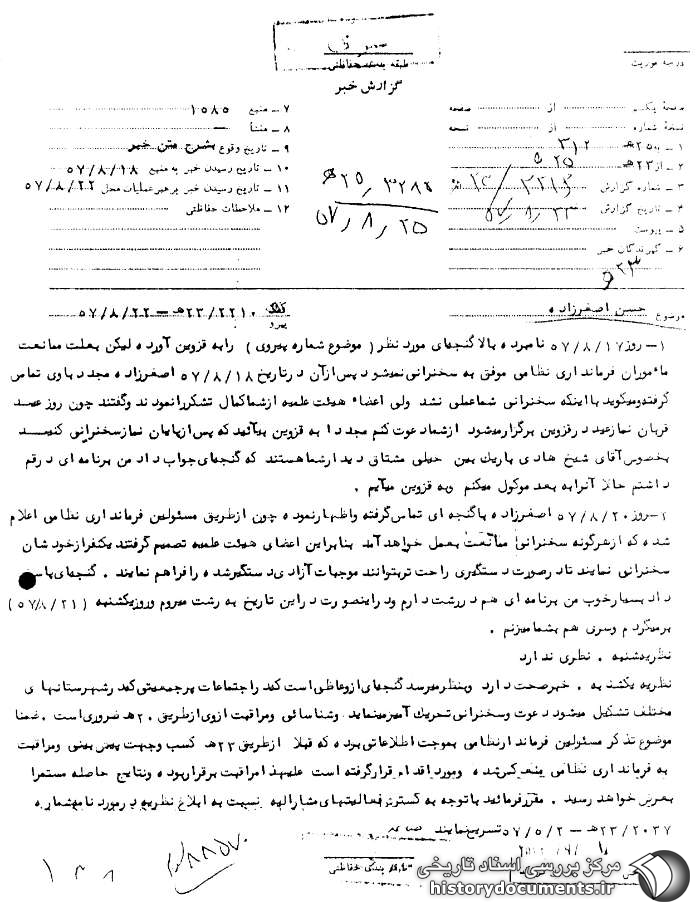 طبقه بندی حفاظتی
گزارش خبر
درجه فوریت
صفحه یک از صفحه
نسخه شماره از نسخه
۱ ـ به ۲۵ هـ ۳۱۲
۲ ـ از ۲۳ هـ
۳ ـ شماره گزارش
۴ ـ تاریخ گزارش
۵ ـ پیوست
۶ ـ گیرندگان خبر
۷ ـ منبع ۱۵۸۵
۸ ـ منشأ
۹ ـ تاریخ وقوع بشرح متن خبر
۱۰ ـ تاریخ رسیدن خبر به منبع ۵۷/۸/۱۸
۱۱ ـ تاریخ رسیدن خبر برهبر عملیات محل ۵۷/۸/۲۲
۱۲ ـ ملاحظات حفاظتی
۵۷/۸/۲۵
موضوع حسن اصغرزاده
پیرو ۲۳/۲۲۱۰هـ – ۵۷/۸/۲۲
۱– روز ۵۷/۸/۱۷ نامبرده بالا گنجهای مورد نظر (موضوع شماره پیروی) را به قزوین آورده لیکن بعلت ممانعت
مأموران فرمانداری نظامی موفق به سخنرانی نمیشود پس از آن در تاریخ ۵۷/۸/۱۸ اصغرزاده مجدد با وی تماس
گرفته و میگوید با اینکه سخنرانی شما عملی نشد ولی اعضاء هیئت علمیه از شما کمال تشکر را نمودند و گفتند چون روز عید
قربان نماز عید در قزوین برگزار میشود از شما دعوت کنم مجددا به قزوین بیائید که پس از پایان نماز سخنرانی کنید
بخصوص آقای شیخ هادی باریک بین خیلی مشتاق دیدار شما هستند که گنجهای جواب داد من برنامه ای در قم
داشتم حالا آنرا به بعد موکول میکنم و به قزوین میآیم .
۲– روز ۵۷/۸/۲۰ اصغرزاده با گنجه ای تماس گرفته و اظهار نموده چون از طریق مسئولین فرمانداری نظامی اعلام
شده که از هرگونه سخنرانی ممانعت بعمل خواهد آمد بنابراین اعضای هیئت علمیه تصمیم گرفتند یکنفر از خودشان
سخنرانی نمایند تا در صورت دستگیری راحت تر بتوانند موجبات آزادی دستگیر شده را فراهم نمایند . گنجهای پاسخ
داد بسیار خوب من برنامه ای هم در رشت دارم و در اینصورت در این تاریخ به رشت میروم و روز یکشنبه (۵۷/۸/۲۱)
برمیگردم و سری هم بشما میزنم .
نظریه شنبه . نظری ندارد
نظریه یکشنبه . خبر صحت دارد و بنظر میرسد گنجهای از وعاظی است که در اجتماعات پر جمعیتی که در شهرستانهای
مختلف تشکیل میشود دعوت و سخنرانی تحریک آمیز مینماید و شناسائی و مراقبت از وی از طریق ۲۰هـ ضروری است . ضمنا
موضوع تذکر مسئولین فرماندار نظامی بموجب اطلاعاتی بوده که قبلا از طریق ۲۳هـ کسب و جهت پیش بینی و مراقبت
به فرمانداری نظامی منعکس شده و مورد اقدام قرار گرفته است علیهذا مراقبت برقرار بوده و نتایج حاصله مستمرا
بعرض خواهد رسید . مقرر فرمائید با توجه به گسترش فعالیتهای مشارالیه نسبت به ابلاغ نظریه در مورد نامه شماره
۲۳/۲۰۳۷هـ – ۵۷/۵/۲ تسریع نمایند
طبقه بندی حفاظتی
مرکز بررسی اسناد تاریخی
historydocuments.ir